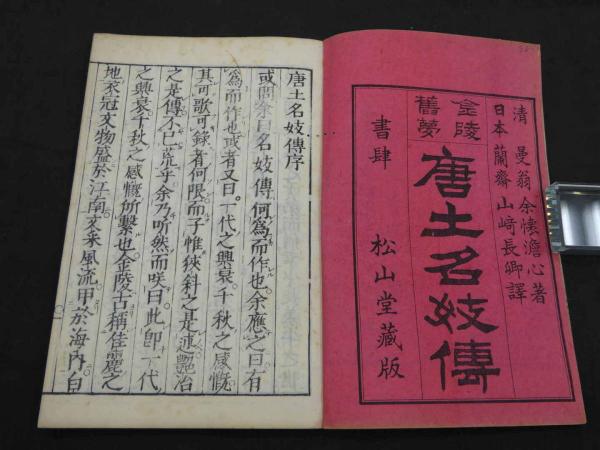 清 曼翁 余懷澹心著
日本 蘭齋 山﨑長卿譯
金陵
舊夢
唐土名妓傳
書肆 松山堂藏版
唐土名妓傳序
或問余曰名妓傳何爲而作也余應之曰有
爲而作也或者又曰一代之興衰千秋之感慨
其可歌可録者何限而子惟狹斜之是述豔冶
之是傳不已荒乎余乃听然而咲曰此即一代
之興衰千秋之感慨所繫也金陵古稱佳麗之
地衣冠文物盛於江南文采風流甲於海内白